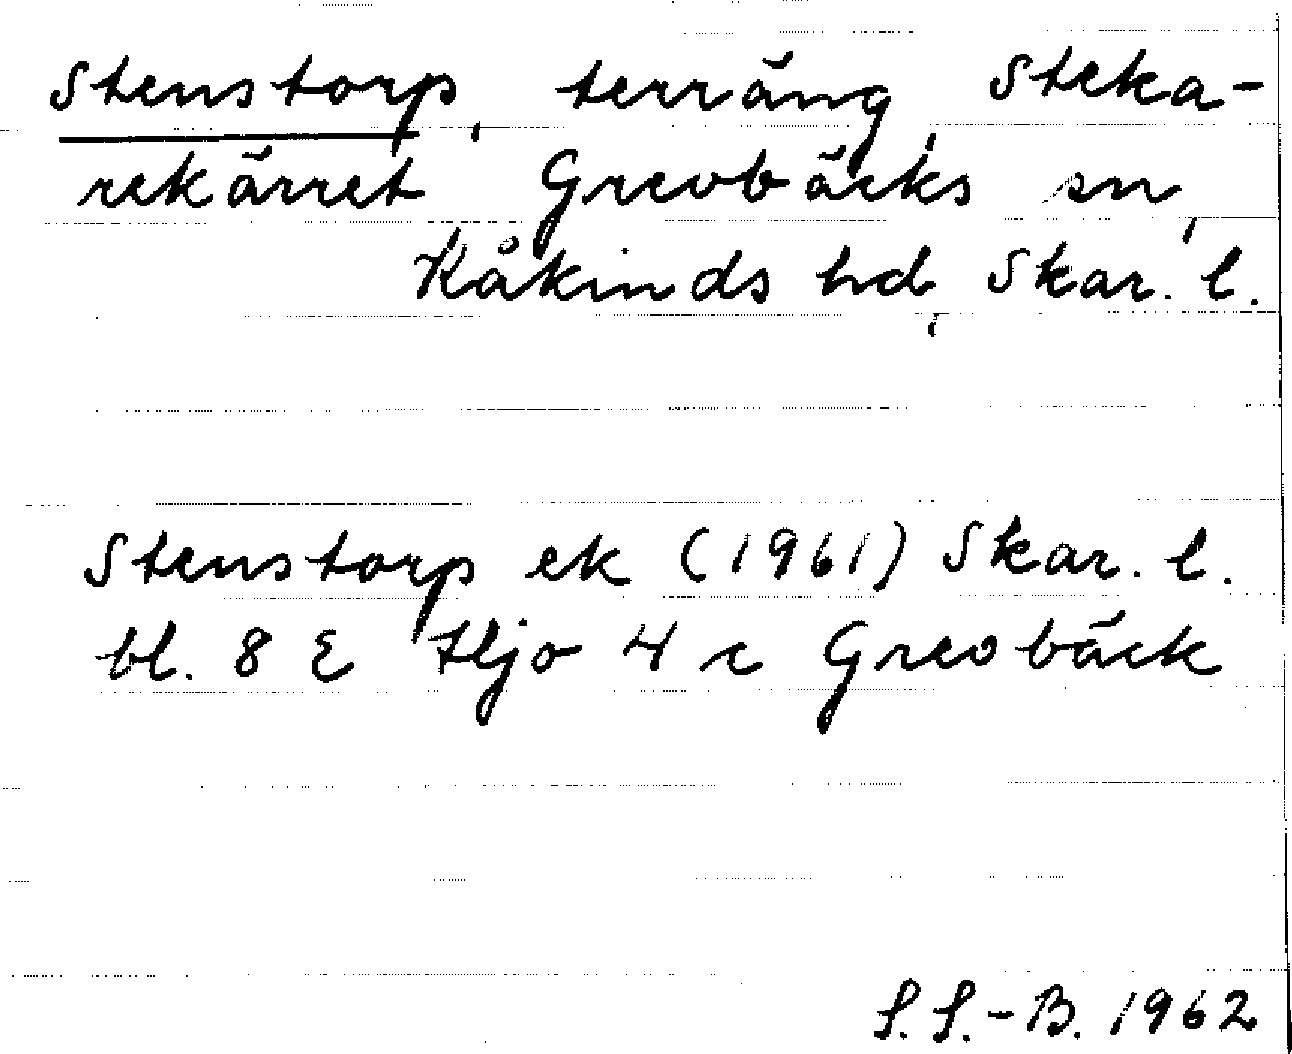 Stenstorp, terräng, Steka-
rekärret Grevbäcks sn,
Kåkinds hd, Skar. l.
Stenstorp ek (1961) Skar. l.
bl. 8 E Hjo 4 c Grevbäck
S. S.-B. 1962